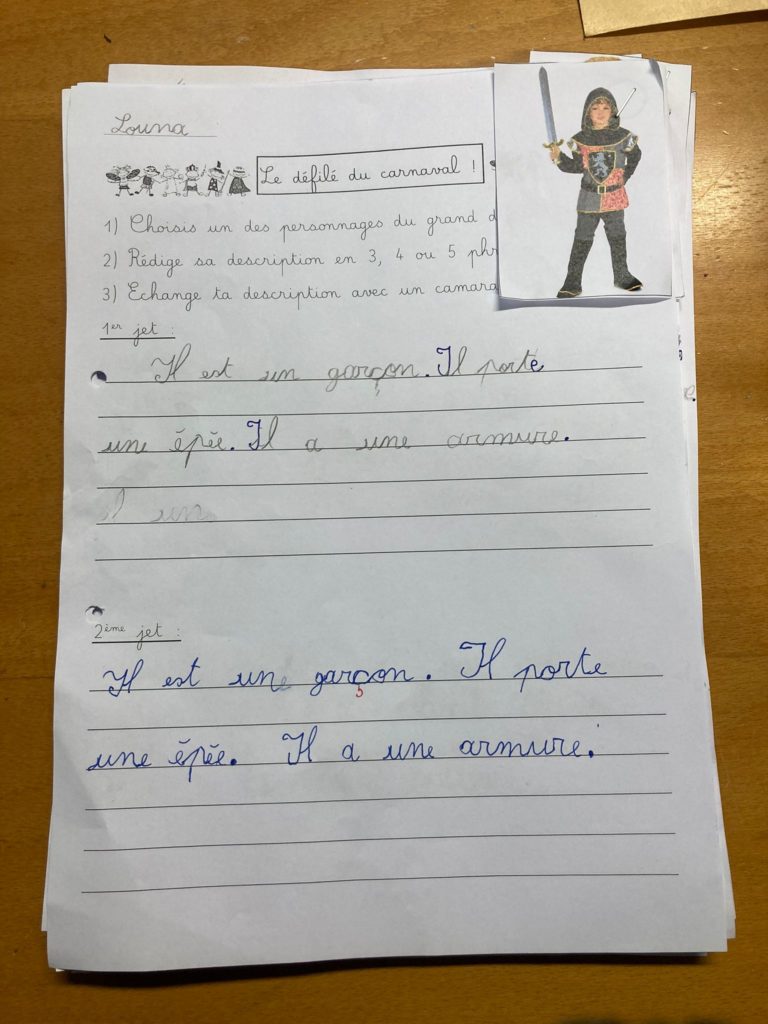 Louna
Le défilé du carnaval !
1) Choisis un des personnages du grand d
2) Rédige sa description en 3, 4 ou 5 phr
3) Echange ta description avec un camara
1er jet :
Il est un garçon. Il porte
une épée. Il a une armure.
il un
2ème jet :
Il est une garçon. Il porte
une épée. Il a une armure.